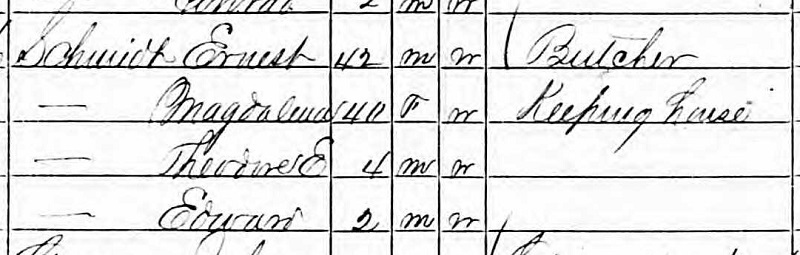 2 m w
Schmidt Ernest 42 m w Butcher
— Magdalena 40 F w Keeping house
— Theodore E 4 m w
— Edward 2 m w